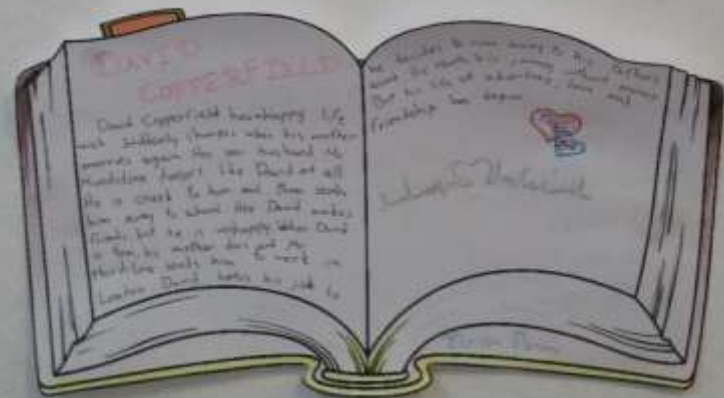 DAVID
COPPERFIELD
David Copperfield has happy life
and suddenly changes when his mother
marries again. Her new husband Mr
Murdstone doesn't like David at all
He is cruel to him and then sends
him away to school. Here David makes
friends but he is unhappy. When David
is ten, his mother dies and Mr
Murdstone sends him to work in
London David hates his job so
he decides to run away to his
and his
But his life of adventure, love and
friendship has begun